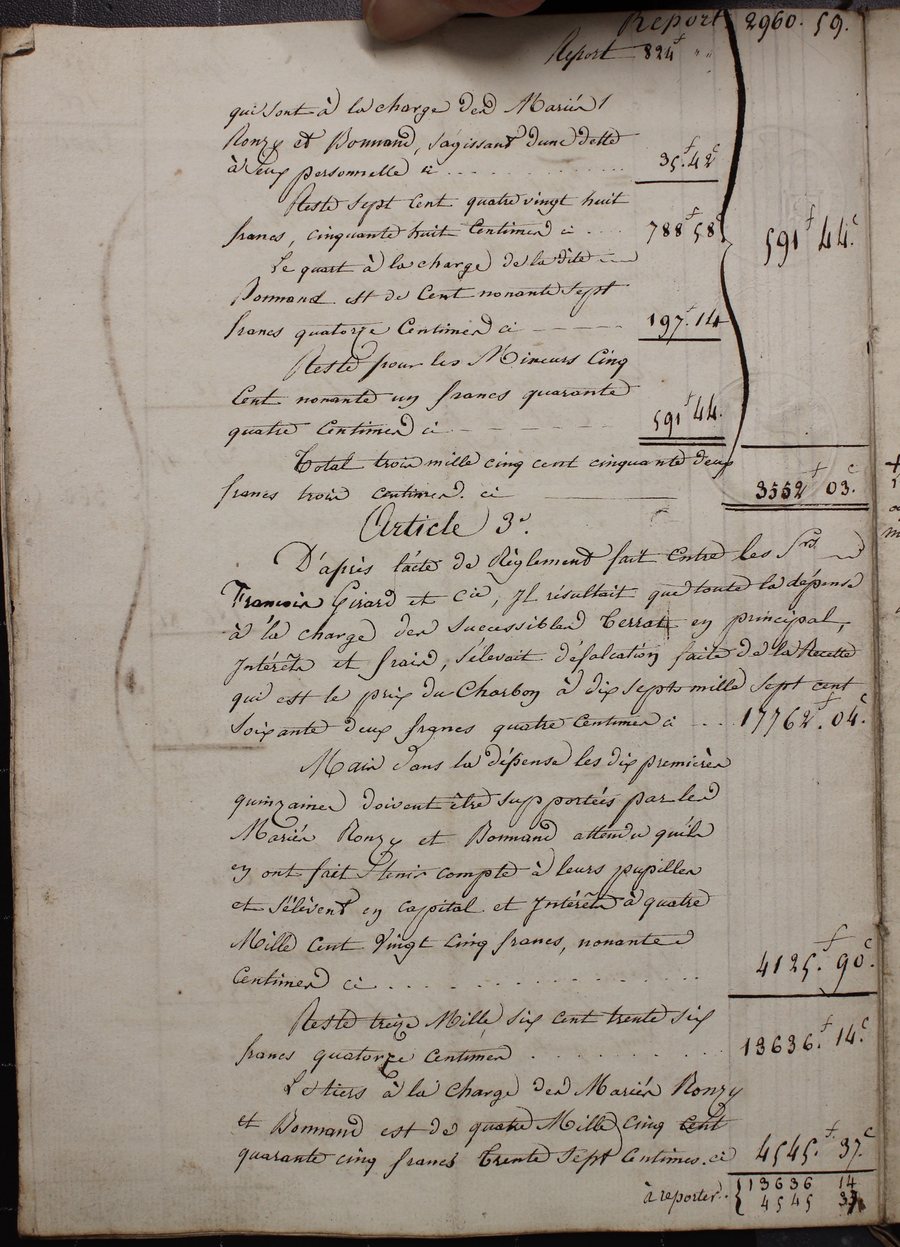 Report 2960. 59.
Report 824f " "
qui sont à la charge des Mariés
Ronzy et Bonnand, s'agissant d'une dette
à Eux personnelle ci . . . . . . . . . 35.f 42c
Reste sept Cent quatre vingt huit
francs, cinquante huit Centimes ci . . . . 788f 58c 591f 44c.
Le quart à la charge de la dite
Bonnand est de Cent nonante sept
francs quatorze Centimes ci — — — — 197.f 14
Reste pour les Mineurs Cinq
Cent nonante un francs quarante
quatre Centimes ci — — — — — 591f 44.
Total trois mille cinq cent cinquante deux
francs trois centimes. ci ———— 3552f 03c.
Article 3e.
D'après l'acte de Règlement fait Entre les Srs
François Girard et Cie, Il résultait que toute la dépense
à la charge des Successibles Terrat en principal,
Intérêts et frais, s'élevait défalcation faite de la Recette
qui est le prix du Charbon à dix sept mille sept cent
soixante deux francs quatre Centimes ci . . . 17762f. 04c.
Mais dans la dépense les dix premières
quinzaines doivent être supportées par les
Mariés Ronzy et Bonnand attendu qu'ils
en ont fait tenir compte à leurs pupilles
et s'élèvent en capital et Intérêts à quatre
Mille Cent Vingt Cinq francs, nonante
Centimes ci . . . . . . . . . . . . . 4125.f 90c.
Reste treize Mille, six cent trente six
francs quatorze Centimes . . . . . . . . 13636.f 14c.
Le tiers à la Charge des Mariés Ronzy
et Bonnand est de quatre Mille Cinq Cent
quarante cinq francs Trente Sept Centimes. ci 4545.f 37.c
à reporter. { 13636 14
4545 37